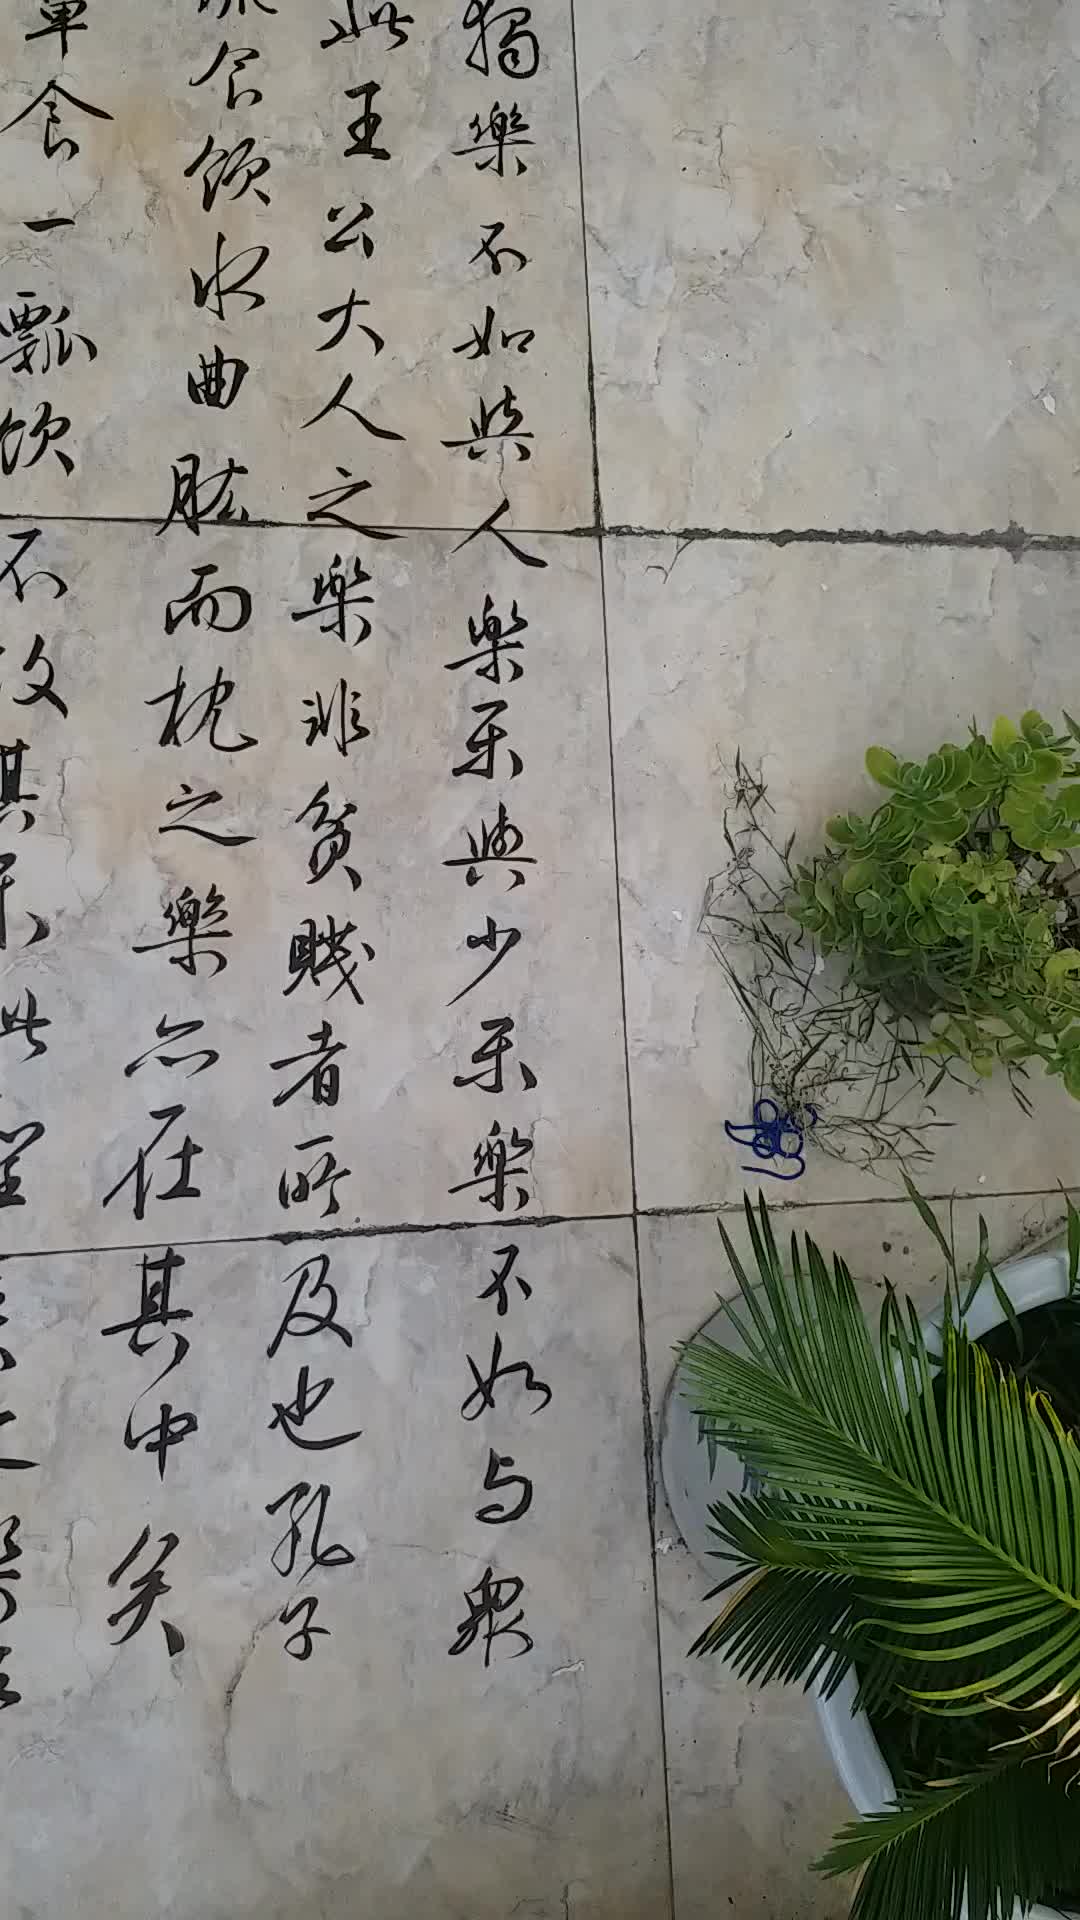 獨樂不如與人樂乐與少乐樂不如与衆
此王公大人之樂非貧賤者所及也孔子
食飲水曲肱而枕之樂亦在其中矣
食一瓢飲不改其乐此聖賢之